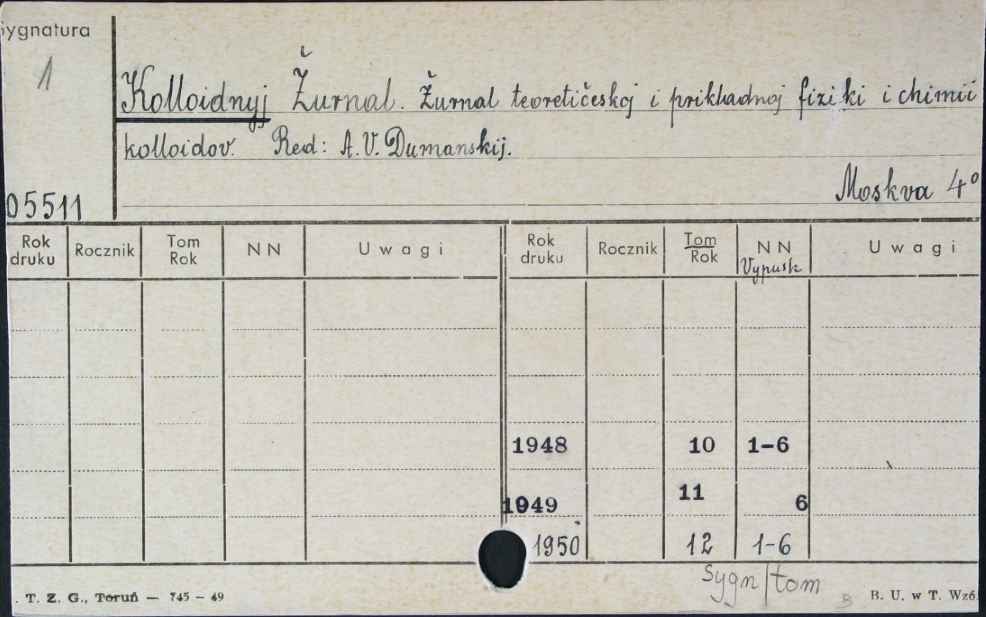 Sygnatura
1
Kolloidnyj Žurnal. Žurnal teoretičeskoj i prikladnoj fiziki i chimii
kolloidov. Red: A.V. Dumanskij.
Moskva 4°
05511
Rok druku Rocznik Tom Rok NN Uwagi Rok druku Rocznik Tom Rok NN Vypusk Uwagi
1948 10 1-6
1949 11 6
1950 12 1-6
Sygn/tom
. T. Z. G., Toruń — 745 - 49
B. U. w T. Wzó